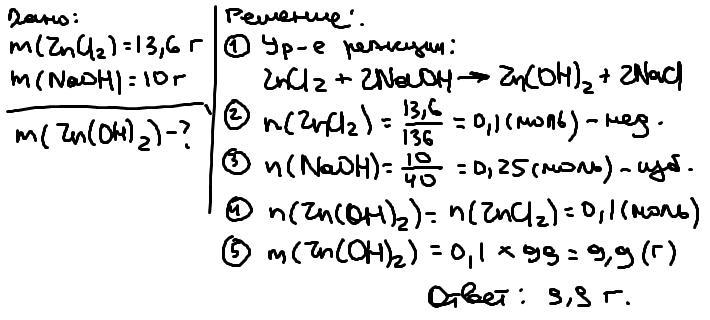 Дано:
m(ZnCl₂)=13,6 г
m(NaOH)=10 г
m(Zn(OH)₂)-?
Решение:
① Ур-е реакции:
ZnCl₂ + 2NaOH → Zn(OH)₂ + 2NaCl
② n(ZnCl₂) = 13,6/136 = 0,1 (моль) - нед.
③ n(NaOH) = 10/40 = 0,25 (моль) - изб.
④ n(Zn(OH)₂) = n(ZnCl₂) = 0,1 (моль)
⑤ m(Zn(OH)₂) = 0,1 × 99 = 9,9 (г)
Ответ: 9,9 г.